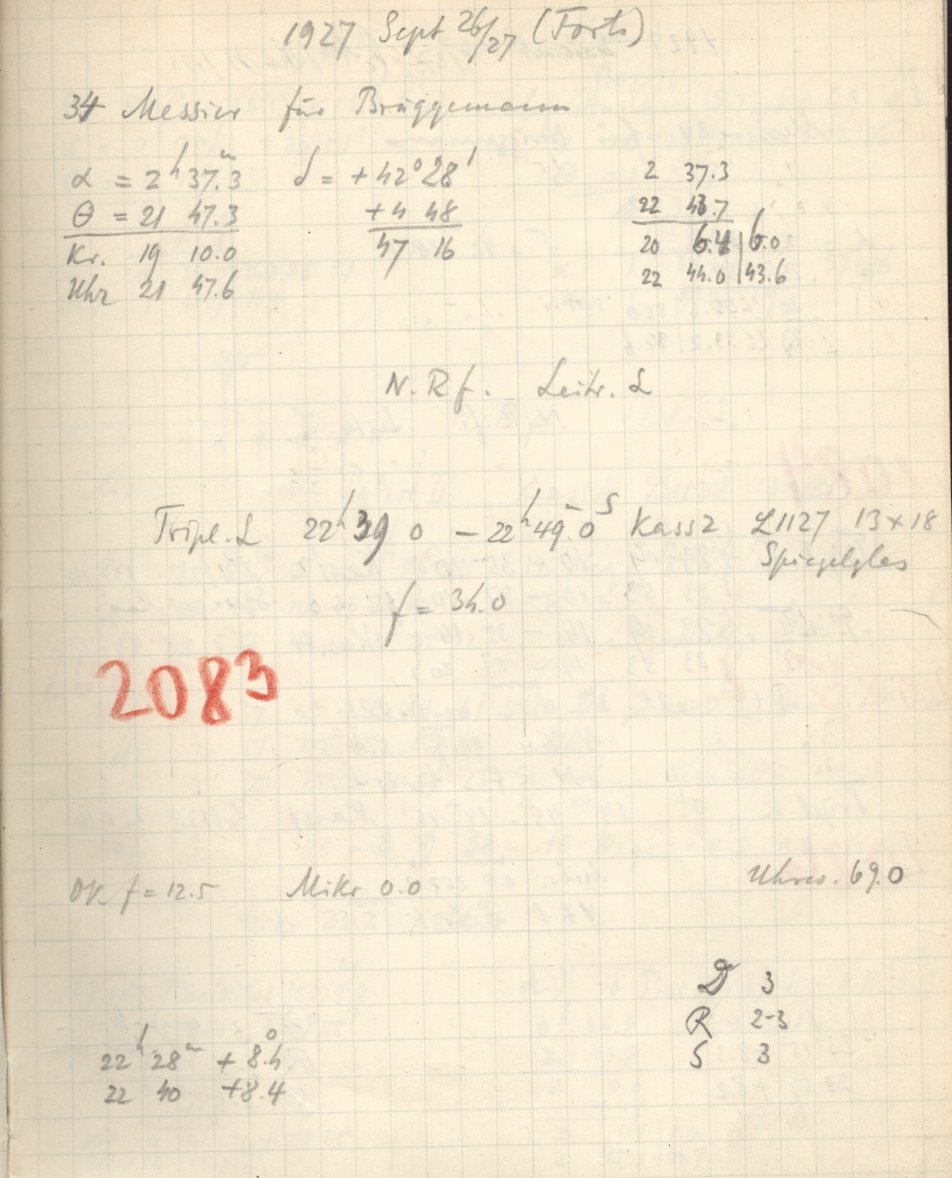 1927 Sept 26/27 (Forts)
34 Messier für Brüggemann
α = 2ʰ 37.ᵐ3 δ = +42° 28' 2 37.3
θ = 21 47.3 +4 48 22 43.7
Kr. 19 10.0 47 16 20 6.4 | 6.0
Uhr 21 47.6 22 44.0 | 43.6
N. R f. Leitr. L
Tripl. L 22ʰ 39 0 – 22ʰ 49ᵐ 0ˢ Kass 2 L1127 13×18
Spiegelglas
f = 34.0
2083
f = 12.5 Mikr 0.0 Uhrw. 69.0
D 3
R 2-3
S 3
22ʰ 28ᵐ + 8.°4
22 40 +8.4